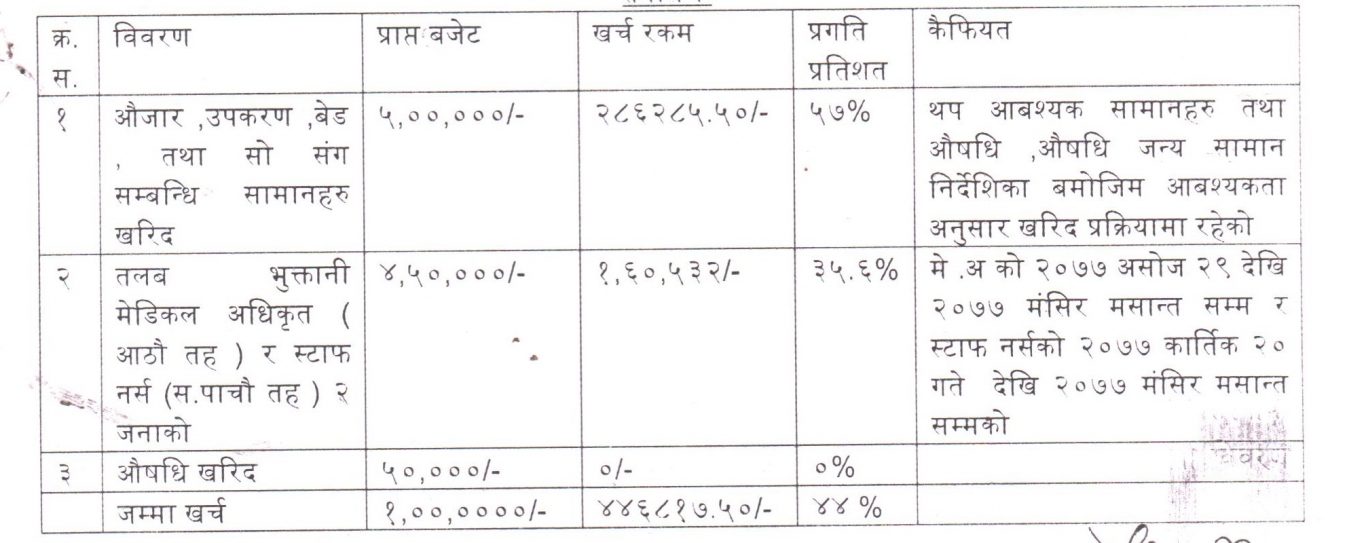 क्र. विवरण प्राप्त बजेट खर्च रकम प्रगति कैफियत
स. प्रतिशत
१ औजार ,उपकरण ,बेड ५,००,०००/- २८६२८५.५०/- ५७% थप आबश्यक सामानहरु तथा
, तथा सो संग औषधि ,औषधि जन्य सामान
सम्बन्धि सामानहरु निर्देशिका बमोजिम आबश्यकता
खरिद अनुसार खरिद प्रक्रियामा रहेको
२ तलब भुक्तानी ४,५०,०००/- १,६०,५३२/- ३५.६% मे .अ को २०७७ असोज २९ देखि
मेडिकल अधिकृत ( २०७७ मंसिर मसान्त सम्म र
आठौ तह ) र स्टाफ स्टाफ नर्सको २०७७ कार्तिक २०
नर्स (स.पाचौ तह ) २ गते देखि २०७७ मंसिर मसान्त
जनाको सम्मको
३ औषधि खरिद ५०,०००/- ०/- ०%
जम्मा खर्च १,००,००००/- ४४६८१७.५०/- ४४ %